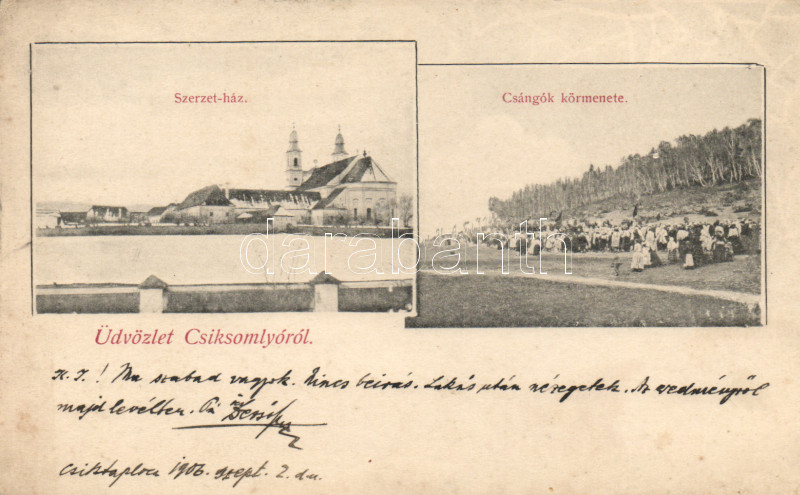 Szerzet-ház.
Csángók körmenete.
darabanth
Üdvözlet Csiksomlyóról.
K. I.! Ma szabad vagyok. Nincs beirás. Lakás után nézegetek. Az eredményről
majd levélben. Pá Dezső
1906. szept. 2. d.u.